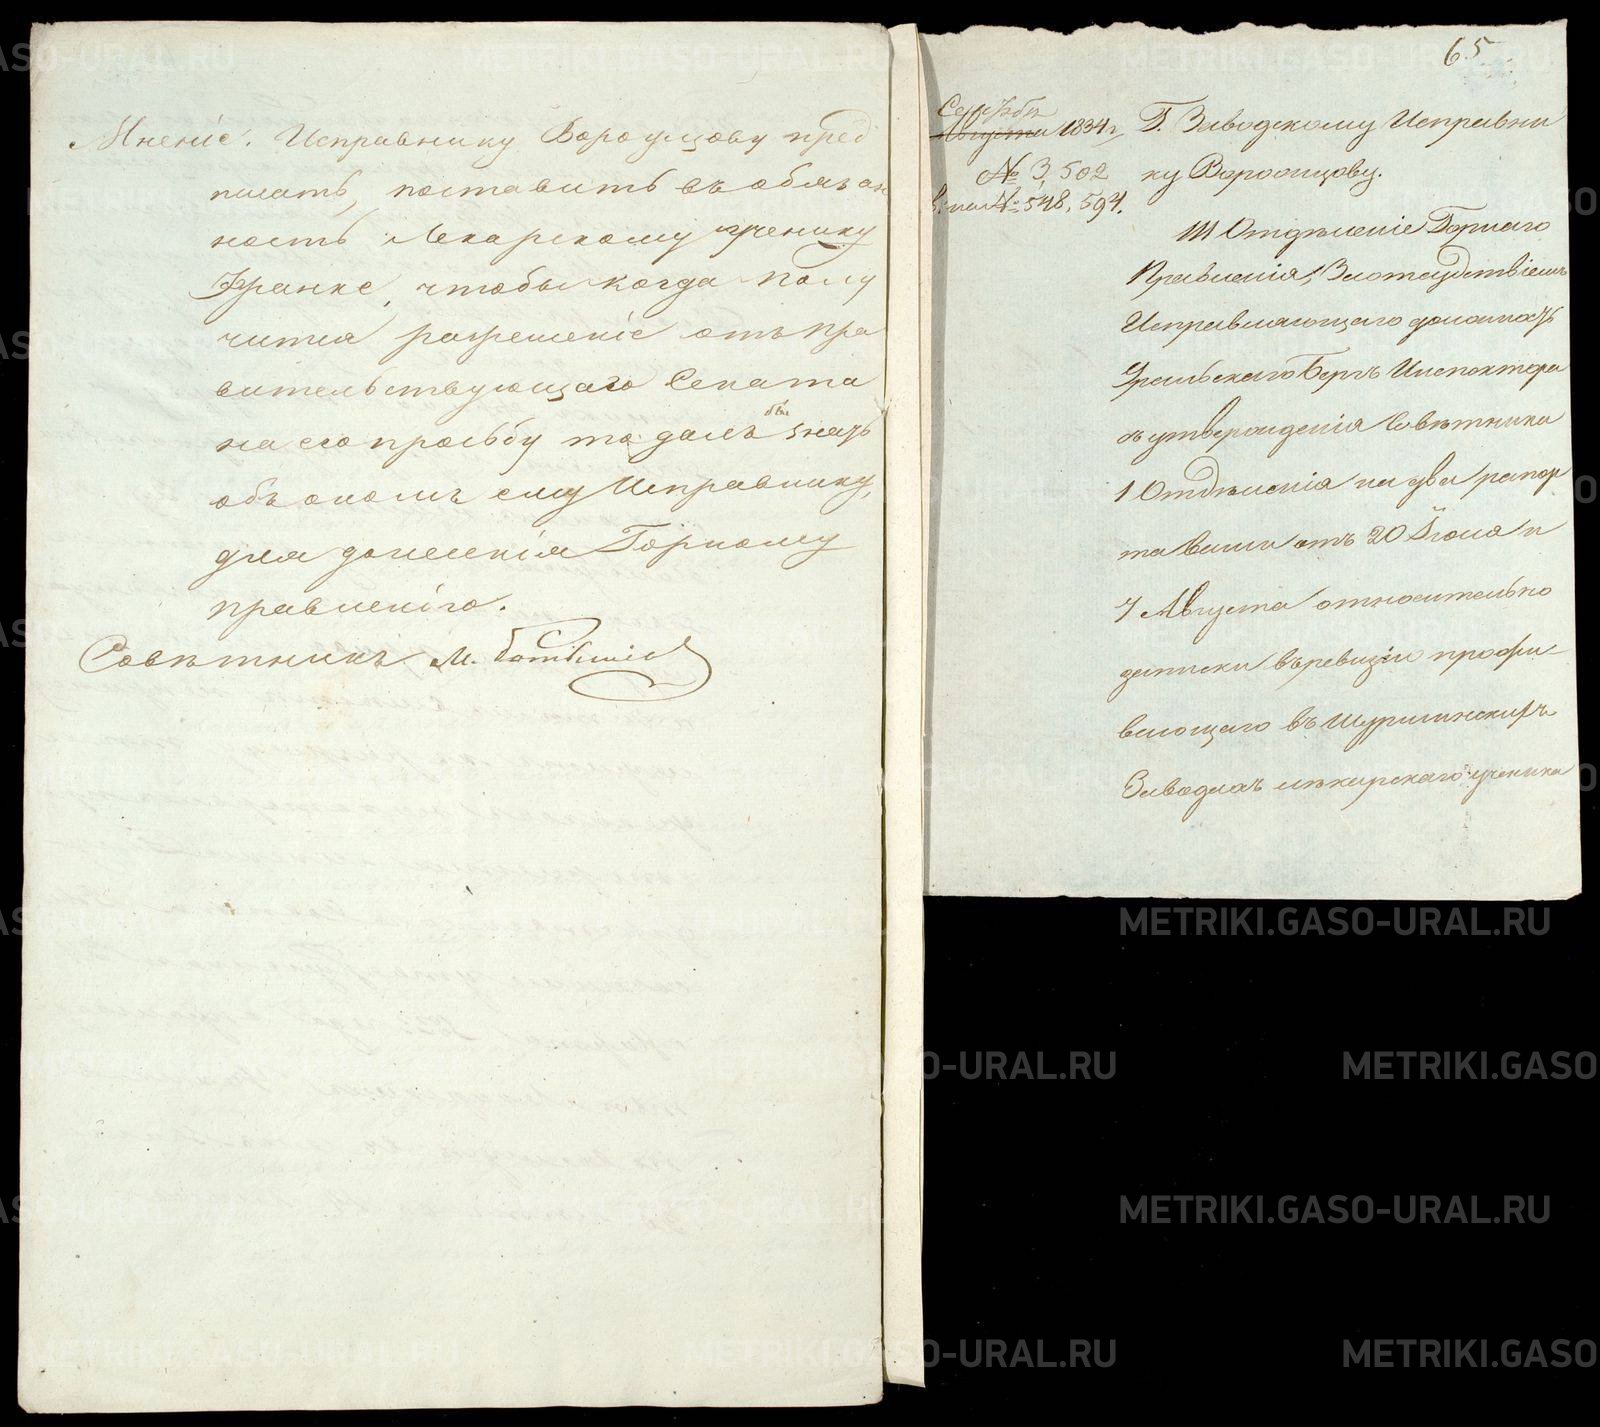 Мненіе. Исправнику Воро цову пред
писать, поставить въ обязан
ность Лекарскому ученику
Франке, чтобы когда полу
чится разрешеніе отъ пра
вительствующаго Сената
на его прозьбу то далъ бы знать
объ ономъ ему Исправнику,
для донесенія Горному
правленію.
Советникъ М.
65
Сентября
Августа 1834 г.
№ 3,502
№ 548, 594.
Г. Заводскому Исправни
ку Воро цову.
III Отделеніе Горнаго
Правленія, За отсудствіемъ
Исправляющаго должность
Уральскаго Бергъ Инспектора
съ утвержденія Советника
1 Отделенія на два рапор
та ваши отъ 20 Іюля и
7 Августа относительно
записки въ ревизію прожи-
вающаго въ Шурминскихъ
Заводахъ лекарскаго ученика
METRIKI.GASO-URAL.RU